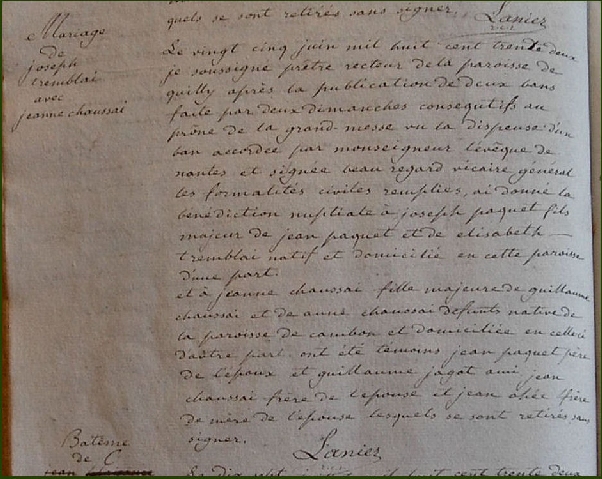 quels se sont retirés sans signer Lanier
Mariage
de
joseph
tremblai
avec
jeanne chaussai
Le vingt cinq juin mil huit cent trente deux
je soussigné prêtre recteur de la paroisse de
quilly après la publication de deux bans
faite par deux dimanches consequtifs au
prône de la grand messe vu la dispense d'un
ban accordée par monseigneur l'évêque de
nantes et signée beau regard vicaire général
les formalités civiles remplies, ai donné la
bénédiction nuptiale à joseph paquet fils
majeur de jean paquet et de elisabeth
tremblai natif et domicilié en cette paroisse
d'une part.
et à jeanne chaussai fille majeure de guillaume
chaussai et de anne chaussai defunts native de
la paroisse de cambon et domiciliée en celle ci
d'autre part. ont été témoins jean paquet père
de l'époux et guillaume jagot ami jean
chaussai frère de l'epouse et jean frère
de mère de l'epouse lesquels se sont retirés sans
signer. Lanier
Batême
de C
jean
Le dix sept huit cent trente deux